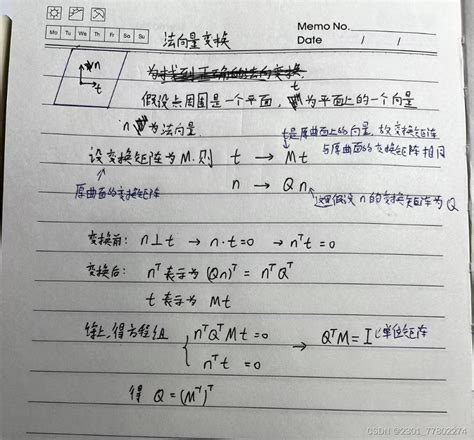 Memo No.
Mo Tu We Th Fr Sa Su
Date / /
法向量变换
n
t
为找到正确的法向变换,
t
假设点周围是一个平面, 为平面上的一个向量
n 为法向量.
t是原曲面上的向量,故变换矩阵
与原曲面的变换矩阵相同
设变换矩阵为M.则 t → Mt
原曲面的变换矩阵
n → Qn
这里假设n的变换矩阵为Q
变换前: n⊥t → n·t=0 → nᵀt=0
变换后: nᵀ表示为 (Qn)ᵀ = nᵀQᵀ
t 表示为 Mt
综上,得方程组 { nᵀQᵀMt=0 → QᵀM=I 单位矩阵
nᵀt=0
得 Q=(M⁻¹)ᵀ
CSDN @2301_77802274